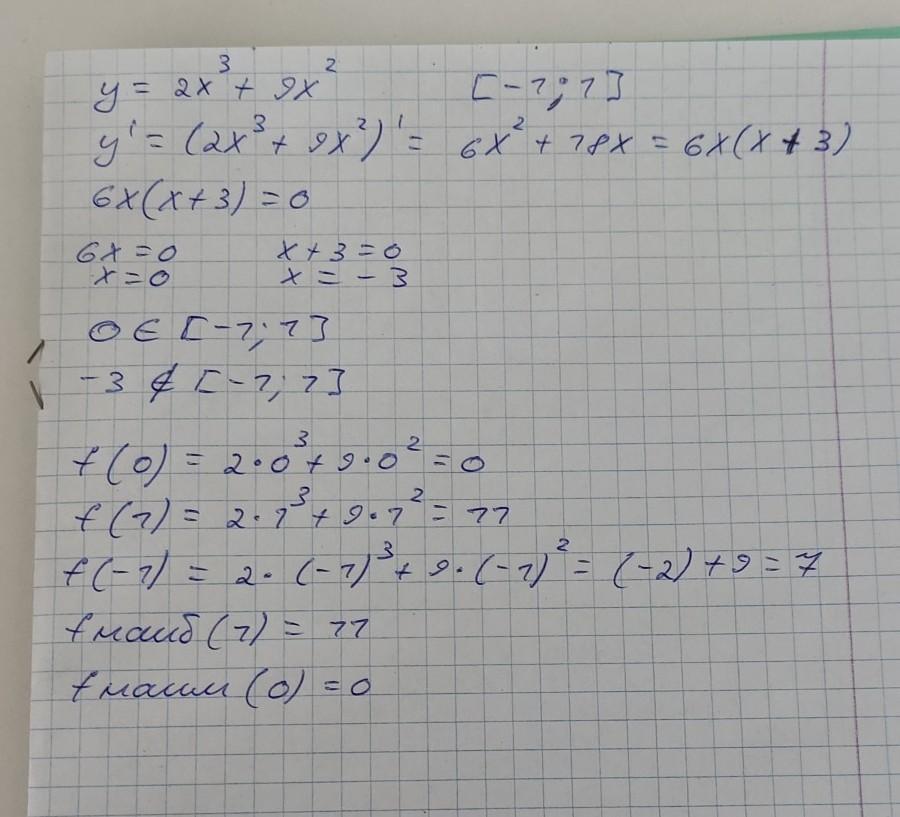 y = 2x³ + 9x² [-1; 1]
y' = (2x³ + 9x²)' = 6x² + 18x = 6x(x + 3)
6x(x+3) = 0
6x = 0 x + 3 = 0
x = 0 x = -3
0 ∈ [-1; 1]
-3 ∉ [-1; 1]
f(0) = 2·0³ + 9·0² = 0
f(1) = 2·1³ + 9·1² = 11
f(-1) = 2·(-1)³ + 9·(-1)² = (-2) + 9 = 7
f наиб (1) = 11
f наим (0) = 0